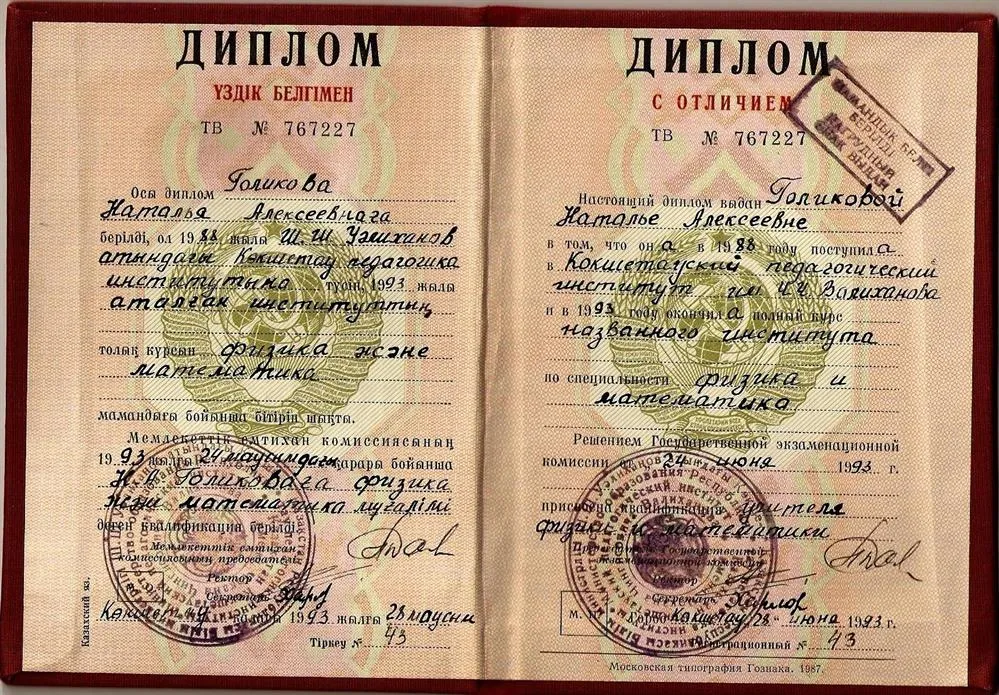 ДИПЛОМ
ҮЗДІК БЕЛГІМЕН
ТВ № 767227
Осы диплом Голикова
Наталья Алексеевнаға
берілді, ол 1988 жылы Ш. Ш Уәлиханов
атындағы Көкшетау педагогика
институтына түсіп, 1993 жылы
аталған институттың
толық курсын физика және
математика
мамандығы бойынша бітіріп шықты.
Мемлекеттік емтихан комиссиясының
1993 жылғы 24 маусымдағы қарары бойынша
Н. А Голиковаға физика
және математика мұғалімі
деген квалификация берілді.
Мемлекеттік емтихан
комиссиясының председателі
Ректор
Секретарь
Көкшетау каласы 1993 жылғы 28 маусым
Тіркеу № 43
Казахский яз.
ДИПЛОМ
С ОТЛИЧИЕМ
ТВ № 767227
БЕРІЛДІ
НАГРУДНЫЙ
ЗНАК ВЫДАН
Настоящий диплом выдан Голиковой
Наталье Алексеевне
в том, что она в 1988 году поступила
в Кокшетауский педагогический
институт им Ч Ч Валиханова
и в 1993 году окончила полный курс
названного института
по специальности физика и
математика
Решением Государственной экзаменационной
комиссии от 24 июня 1993 г.
присвоена квалификация учителя
физики и математики
Председатель Государственной
экзаменационной комиссии
Ректор
Секретарь
М. Город Кокшетау, 28 июня 1993 г.
Регистрационный № 43
Московская типография Гознака. 1987.